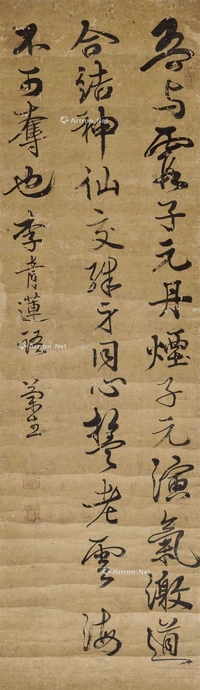 吾与霞子元丹煙子元演氣激道
合結神仙交殊身同心誓老雲海
不可奪也李青蓮語
Artron.Net